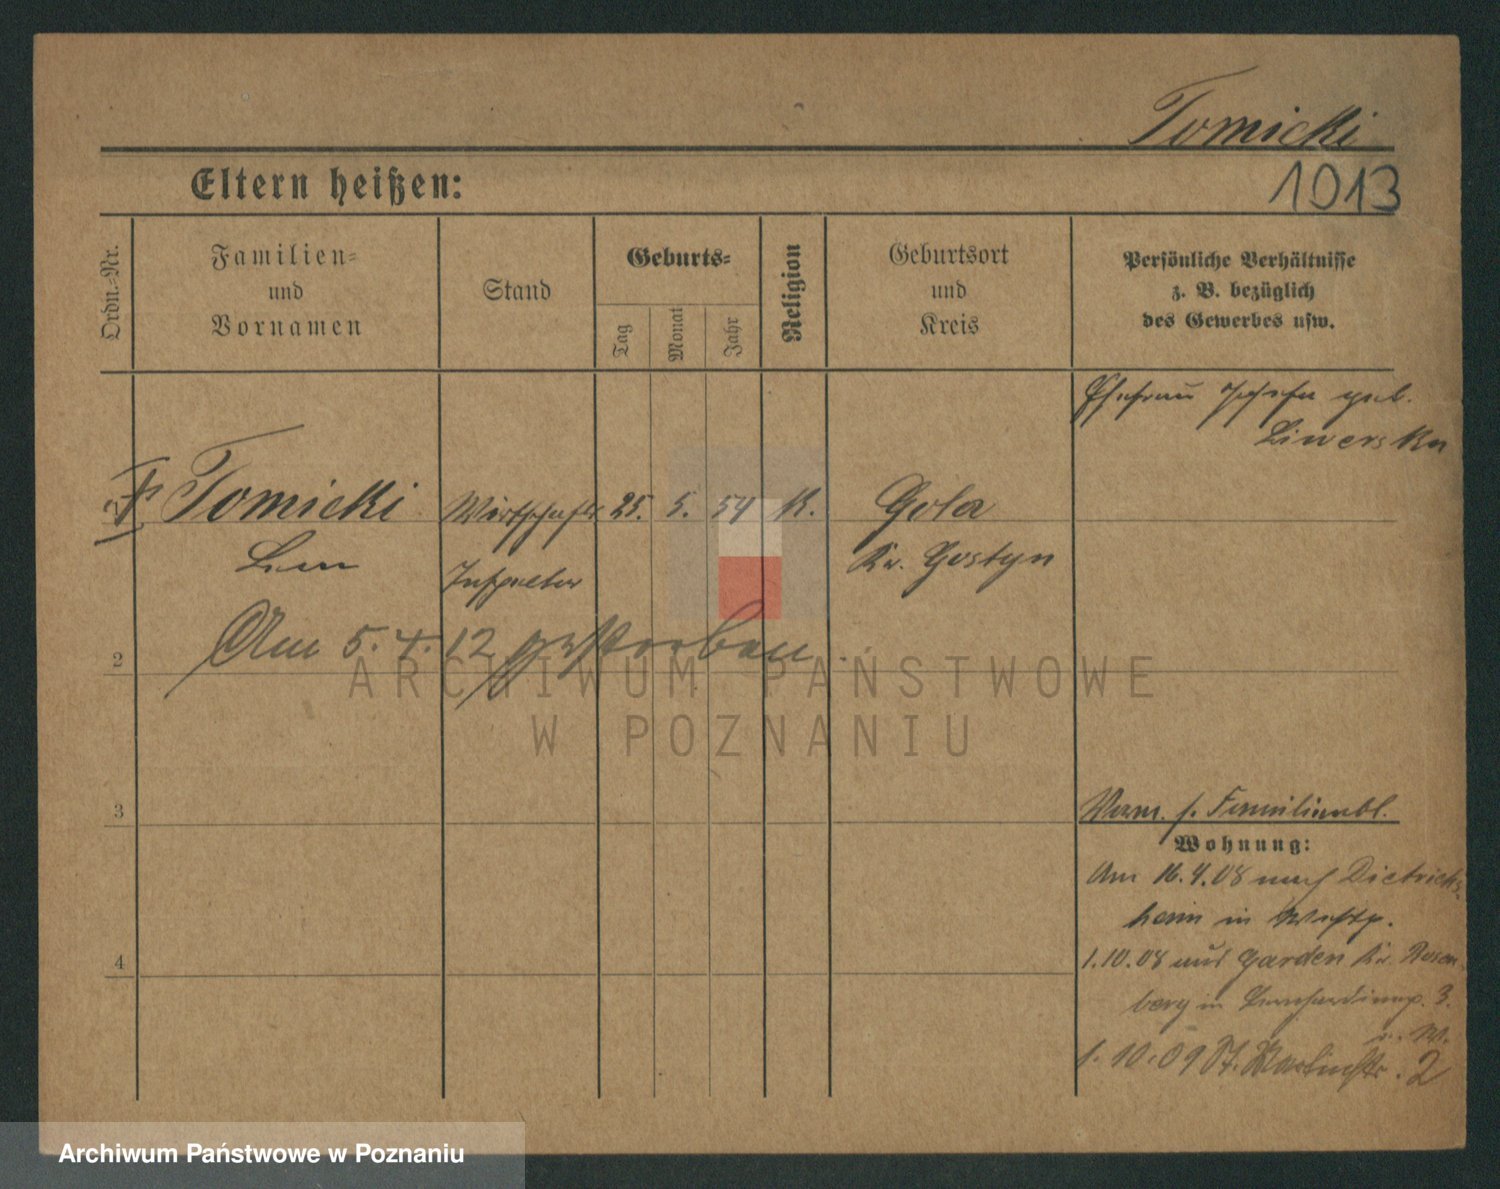 Tomicki
1013
Eltern heißen:
Ordn.-Nr.
Familien-
und
Vornamen
Stand
Geburts-
Tag
Monat
Jahr
Religion
Geburtsort
und
Kreis
Persönliche Verhältnisse
z. B. bezüglich
des Gewerbes usw.
Ehefrau Josefa geb.
Liwerska
Tomicki Wirtschafts 25. 5. 54 K. Gola
Leon Inspektor Kr. Gostyn
Am 5.4.12 gestorben
2
3
4
Verm. s. Familienbl.
Wohnung:
Am 16.4.08 nach Dietrichs-
heim in Westp.
1.10.08 aus Garden Kr. Rosen-
berg in Bernhardinerp. 3.
1.10.09 St. Martinstr. 2
ARCHIWUM PAŃSTWOWE
W POZNANIU
Archiwum Państwowe w Poznaniu